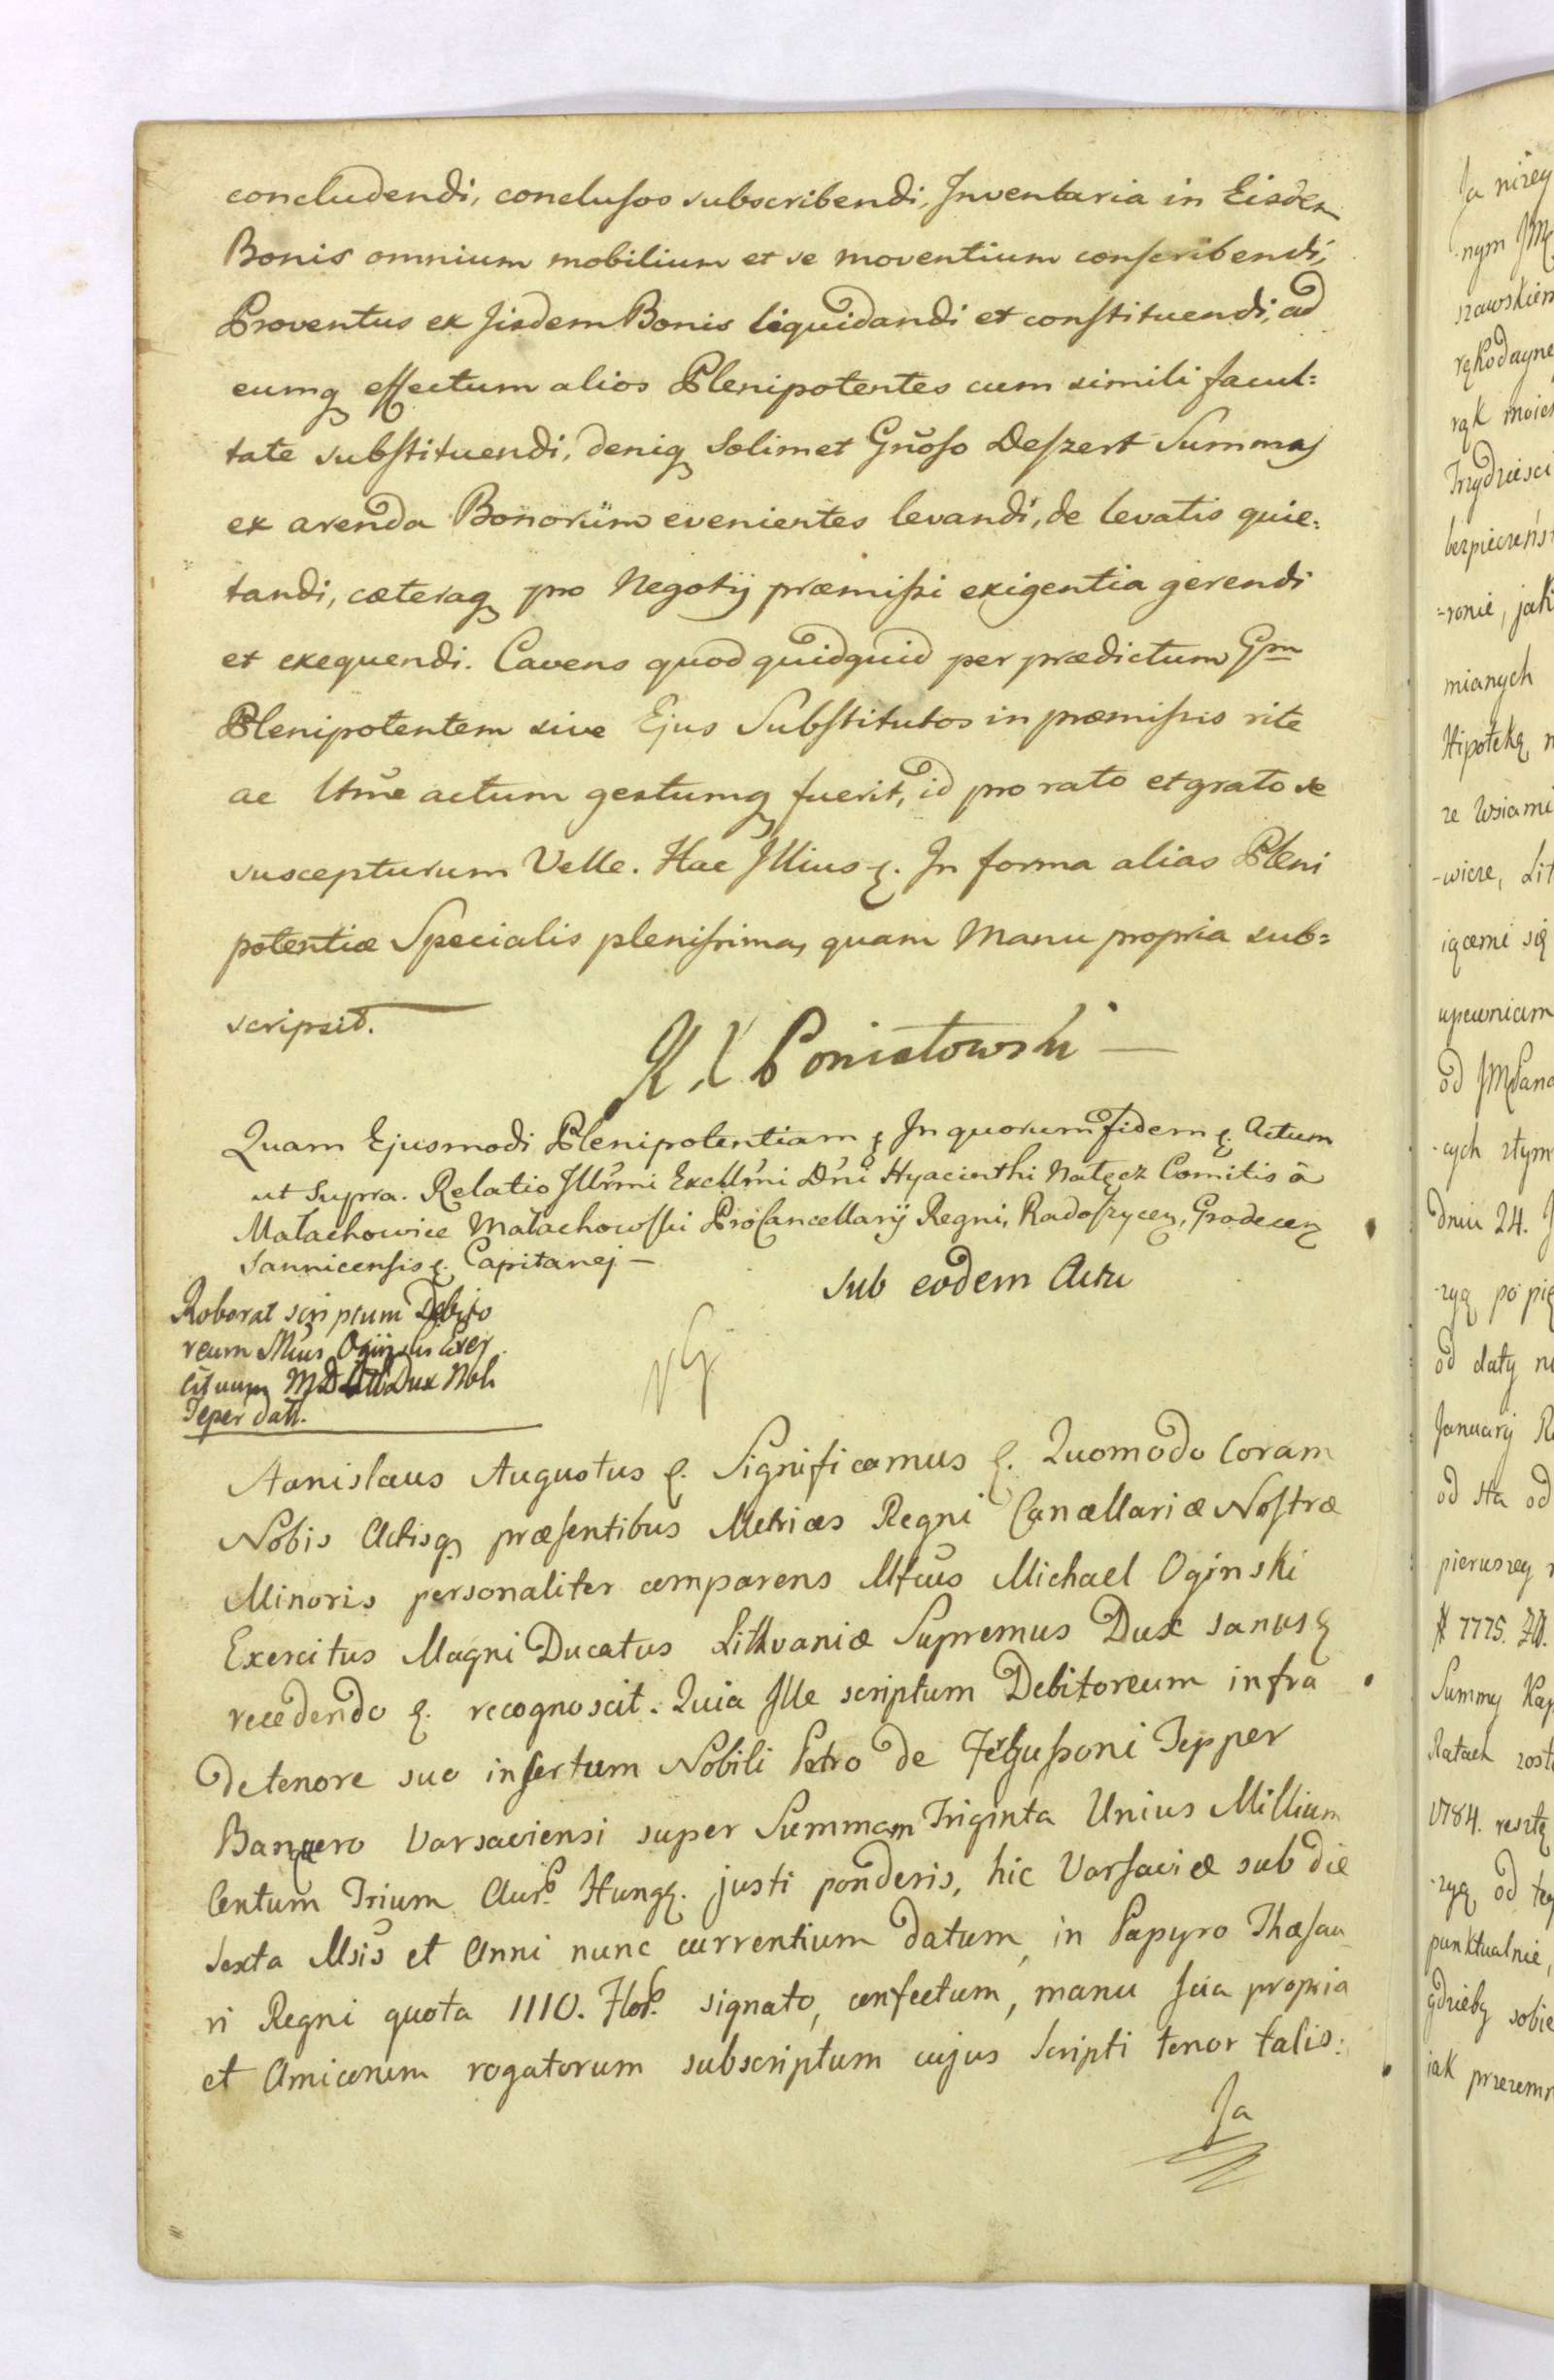 concludendi, conclusos subscribendi, Inventaria in Eisdem
Bonis omnium mobilium et se moventium conscribendi,
Proventus ex Iisdem Bonis liquidandi et constituendi, ad
eumq effectum alios Plenipotentes cum simili facul=
tate substituendi, deniq Solimet Gnõso Deszert Summas
ex arenda Bonorum evenientes levandi, de levatis quie=
tandi, cæteraq pro Negotij præmissi exigentia gerendi
et exequendi. Cavens quod quidquid per prædictum Gm
Plenipotentem sive Ejus Substitutos in præmissis rite
ac ltme actum gestumq fuerit, id pro rato et grato se
suscepturum Velle. Hac Illius &. In forma alias Pleni
potentiæ Specialis plenissimæ, quam Manu propria sub=
scripsit.
K X Poniatowski —
Quam Ejusmodi Plenipotentiam & In quorum fidem &. Actum
ut Supra. Relatio Illrmi Excllmi Dnĩ Hyacinthi Nałęcz Comitis à
Małachowice Małachowski ProCancellarij Regni, Radoszycen, Grodecen
Sannicensis &. Capitanej —
Sub eodem Actu
Roborat scriptum Debito
reum Mcus Ogiński Exer
cituum MDLitt Dux Nob
Teper datt.
Stanislaus Augustus &. Significamus &. Quomodo Coram
Nobis Actisq præsentibus Metrices Regni Cancellariæ Nostræ
Minoris personaliter comparens Mfcus Michael Oginski
Exercitus Magni Ducatus Lithvaniæ Supremus Dux sanus &
recedendo &. recognoscit. Quia Ille scriptum Debitoreum infra
de tenore suo insertum Nobili Petro de Fergussoni Tepper
Banquero Varsaviensi super Summam Triginta Unius Millium
Centum Trium Aur. Hung. justi ponderis, hic Varsaviæ sub die
Sexta Msis et Anni nunc currentium datum, in Papyro Thesau
ri Regni quota 1110. Flor. signato, confectum, manu sua propria
et Amicorum rogatorum subscriptum cujus Scripti tenor talis:
Ja
Ja niżey
nym JM
szawskiem
rękodayne
rąk moich
Trzydzieści
bezpieczeńs
=ronie, jak
mianych
Hipotekę
ze Wsiami
-wicze, Lit
iącemi się
upewniam
od JMPana
-cych złym
dniu 24.
-zyą po pię
od daty
January
od sta od
pierwszey
# 7775.
Summy Kap
Ratach
1784. resztę
-zyą od tey
punktualnie,
gdzieby sobie
iak przezemn